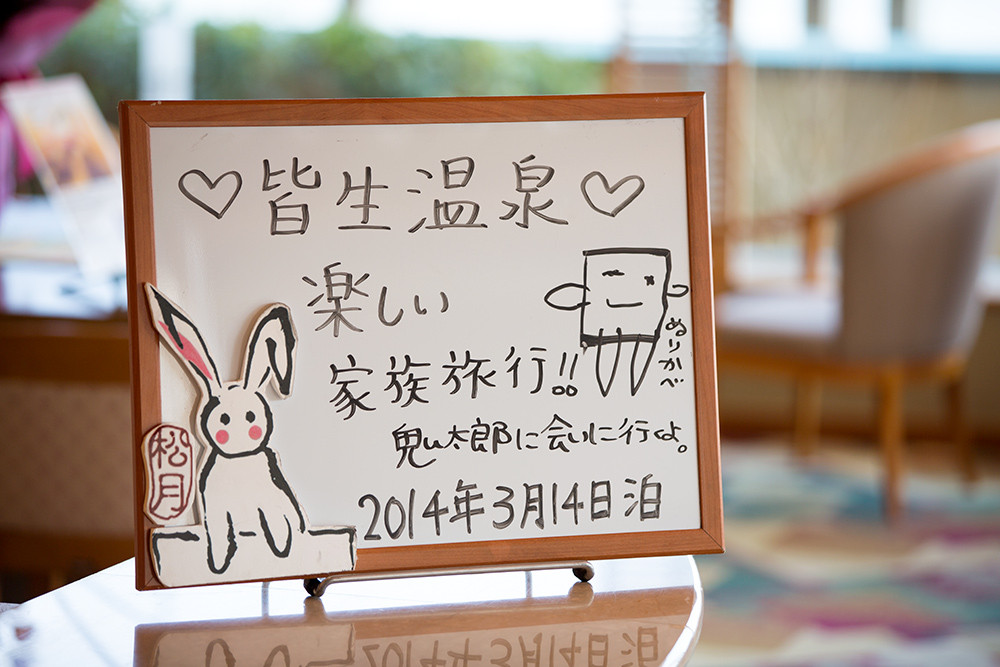 ♡皆生温泉♡
楽しい
ぬりかべ
家族旅行!!
鬼太郎に会いに行くよ。
2014年3月14日泊
松月